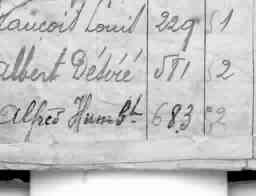 Francois Louis 229 51
Albert Désiré 581 52
Alfred Humbt 683 52